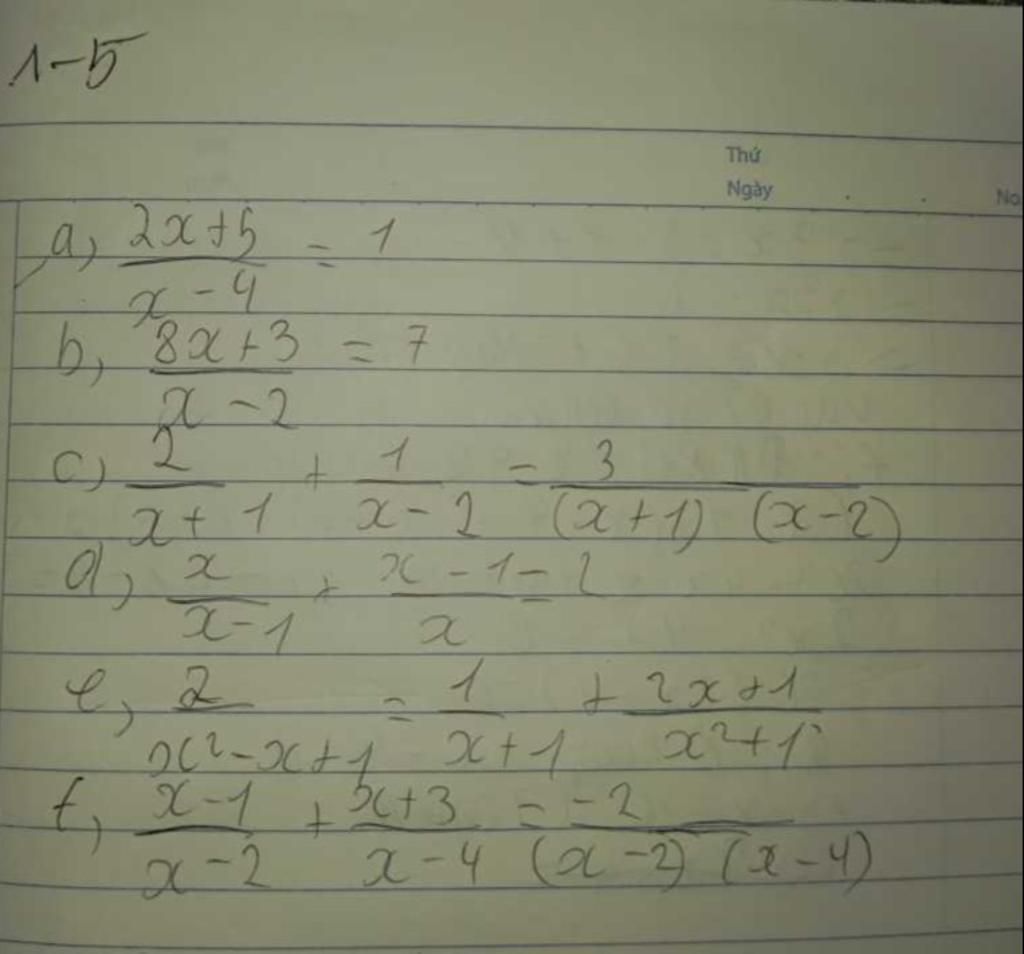 1-5
Thứ
Ngày
No
a, (2x+5)/(x-4) = 1
b, (8x+3)/(x-2) = 7
c) 2/(x+1) + 1/(x-2) = 3/((x+1)(x-2))
d, x/(x-1) + (x-1)/x = 2
e, 2/(x²-x+1) = 1/(x+1) + (2x+1)/(x²+1)
f, (x-1)/(x-2) + (x+3)/(x-4) = -2/((x-2)(x-4))